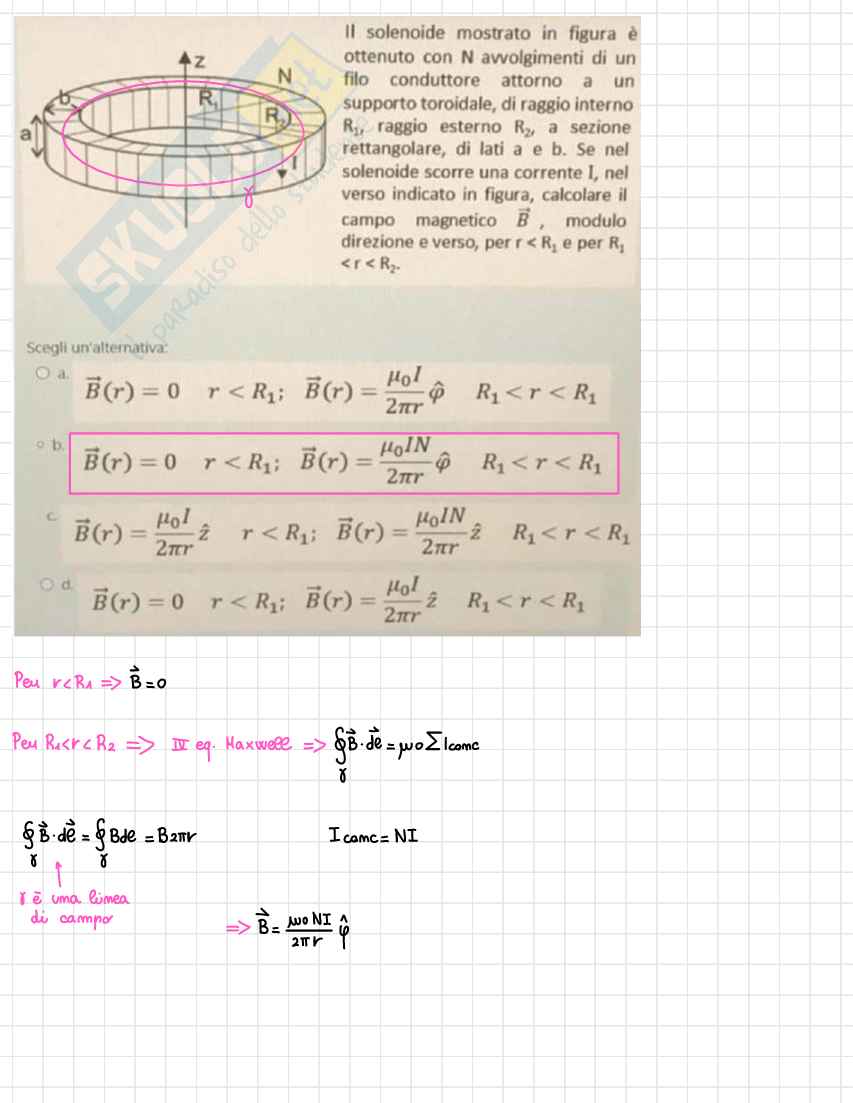 Il solenoide mostrato in figura è
ottenuto con N avvolgimenti di un
filo conduttore attorno a un
supporto toroidale, di raggio interno
R₁, raggio esterno R₂, a sezione
rettangolare, di lati a e b. Se nel
solenoide scorre una corrente I, nel
verso indicato in figura, calcolare il
campo magnetico B⃗ , modulo
direzione e verso, per r < R₁ e per R₁
< r < R₂.
z
N
b
R₁
R₂
a
I
γ
SKUOLA.net
il paradiso dello studente
Scegli un'alternativa:
a. B⃗(r) = 0 r < R₁; B⃗(r) = μ₀I/2πr φ̂ R₁ < r < R₁
b. B⃗(r) = 0 r < R₁; B⃗(r) = μ₀IN/2πr φ̂ R₁ < r < R₁
c. B⃗(r) = μ₀I/2πr ẑ r < R₁; B⃗(r) = μ₀IN/2πr ẑ R₁ < r < R₁
d. B⃗(r) = 0 r < R₁; B⃗(r) = μ₀I/2πr ẑ R₁ < r < R₁
Per r < R₁ => B⃗ = 0
Per R₁ < r < R₂ => IV eq. Maxwell => ∮γ B⃗ · dl⃗ = μ₀ Σ Iconc
∮γ B⃗ · dl⃗ = ∮γ B dl = B2πr Iconc = NI
γ è una linea
di campo
=> B⃗ = μ₀NI/2πr φ̂